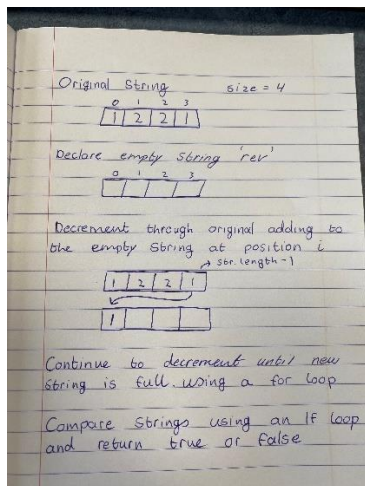 Original String size = 4
0 1 2 3
1 2 2 1
Declare empty String 'rev'
0 1 2 3
Decrement through original adding to
the empty String at position i
str.length-1
1 2 2 1
1
Continue to decrement until new
String is full. using a for loop
Compare Strings using an If loop
and return true or false